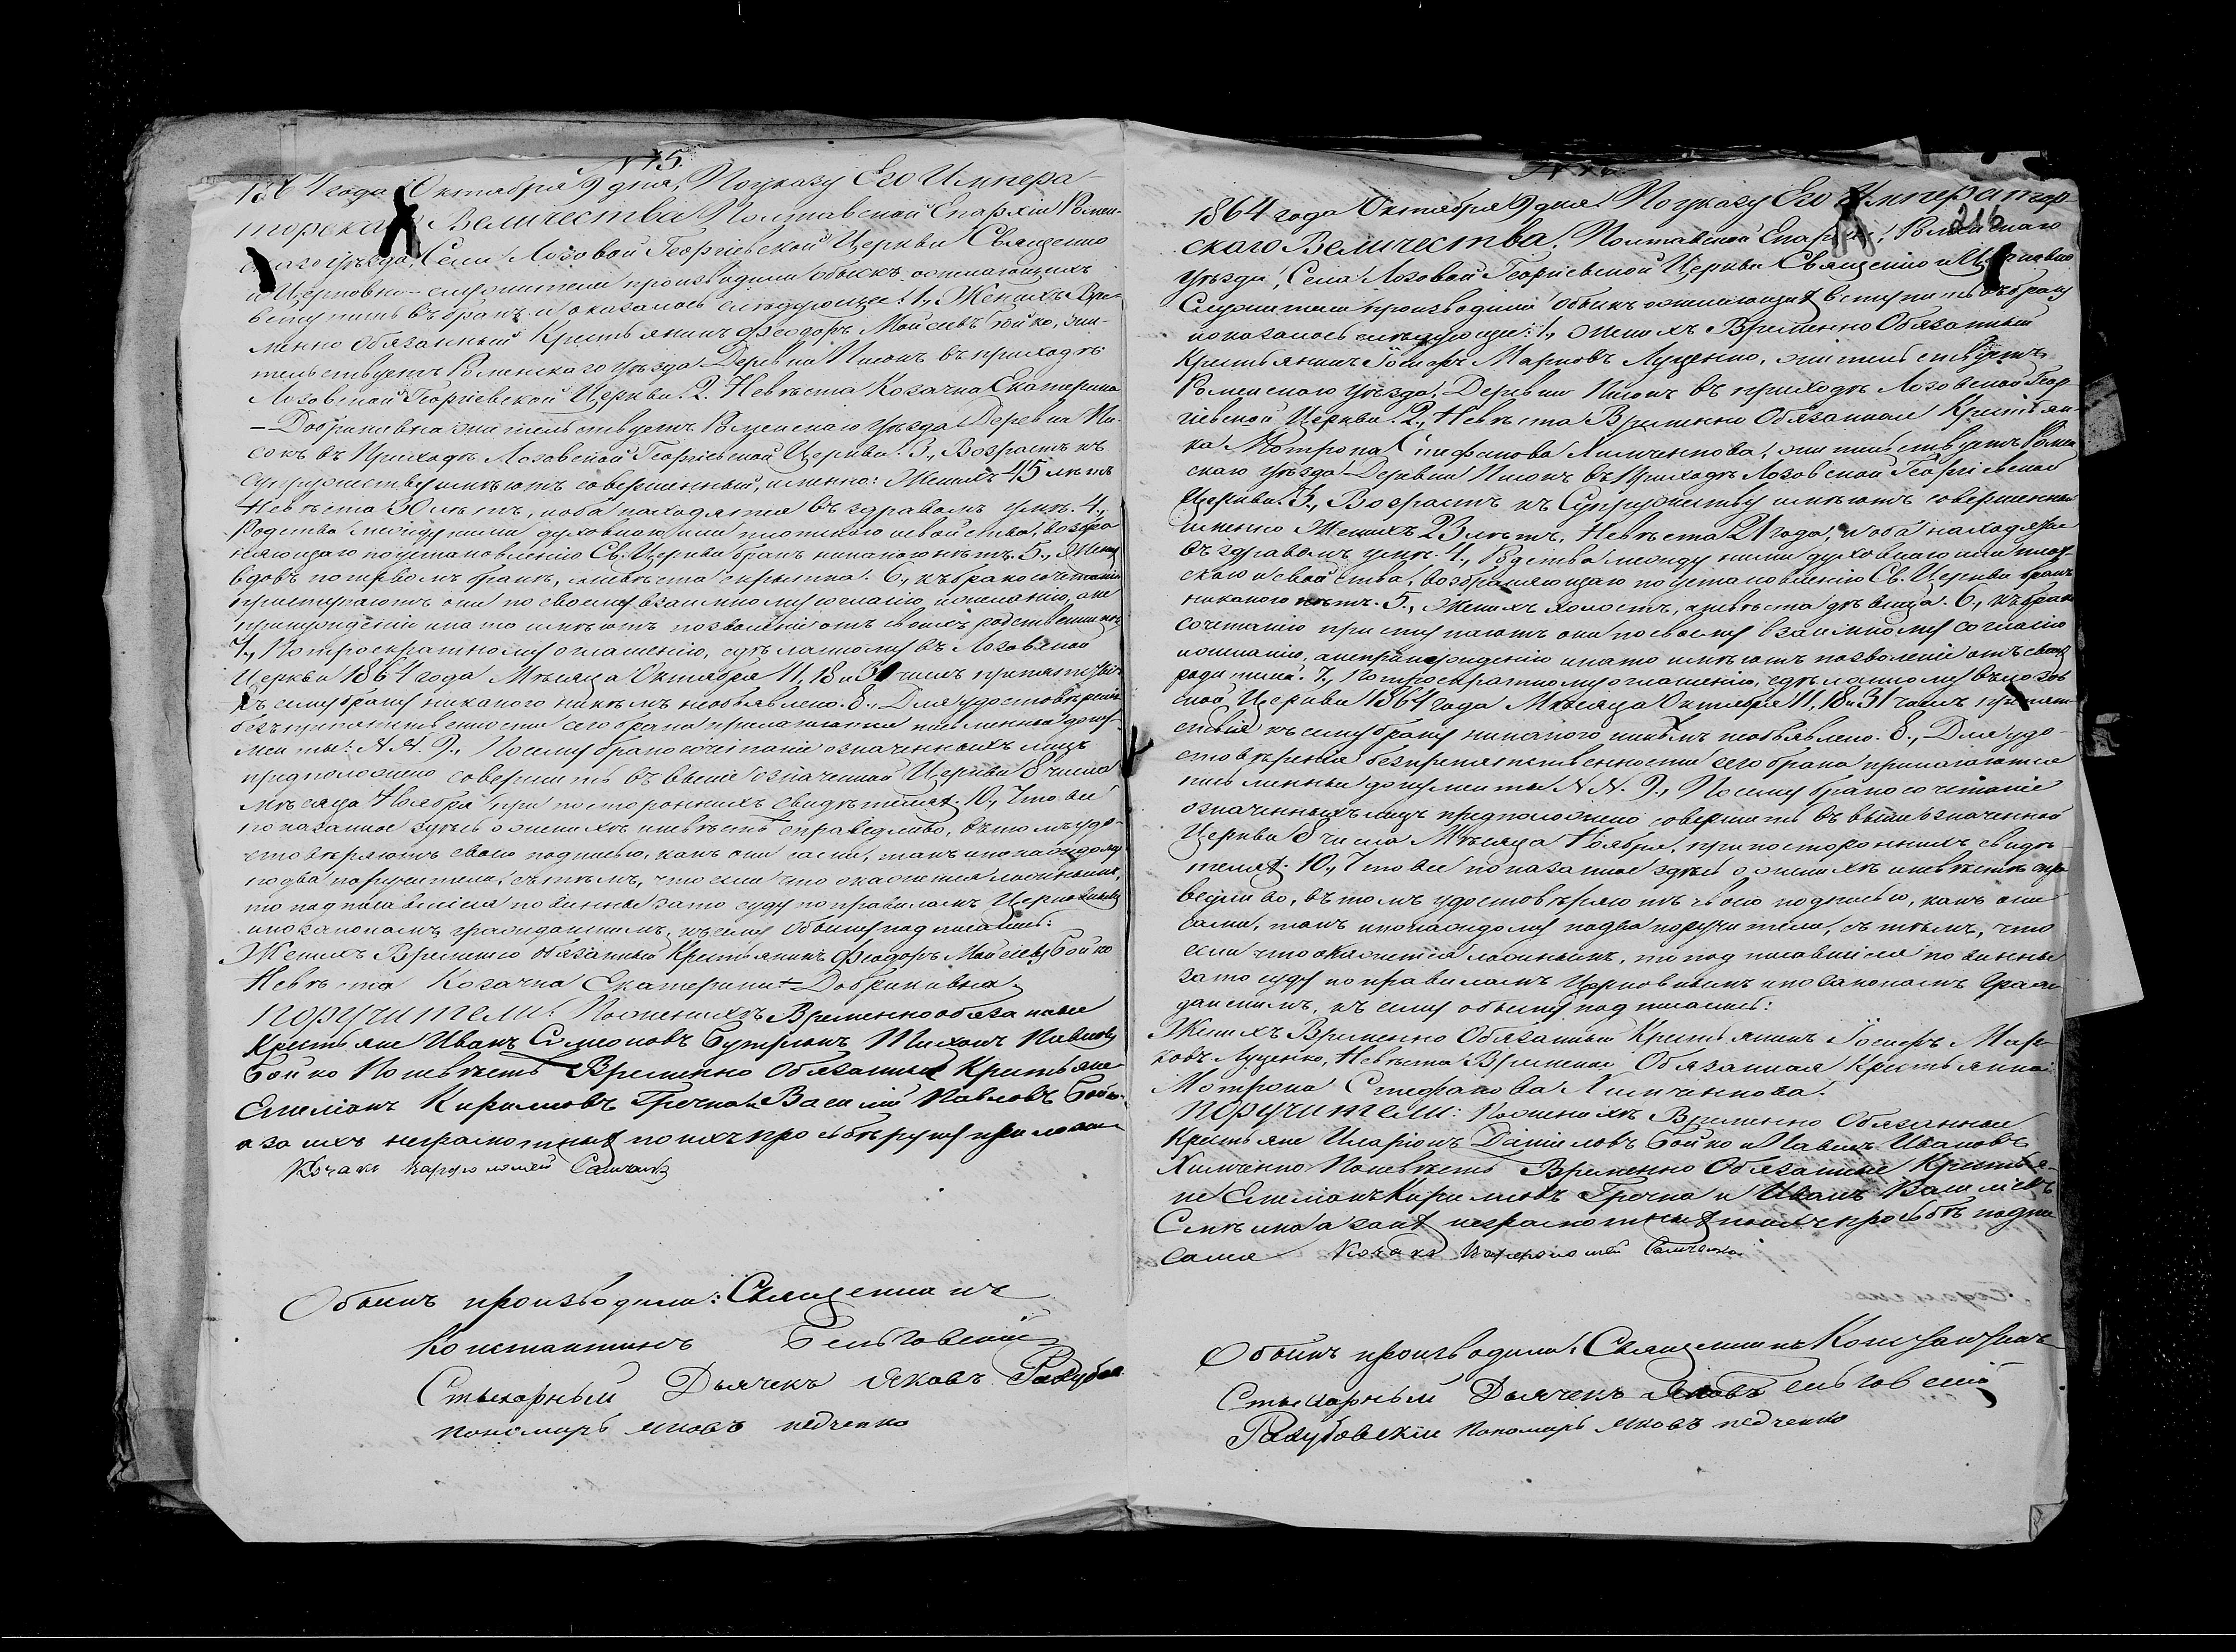 № 15.
1864 года Октября 9 дня, По указу Его Импера-
торскаго Величества Полтавской Епархіи Ромен-
скаго уѣзда, Села Лозовой Георгіевской Церкви Священно
и Церковно-служители производили обыскъ о желающихъ
вступить въ бракъ и оказалось слѣдующее: 1., Женихъ Вре-
менно Обязанный Крестьянинъ Феодоръ Моисеевъ Бойко, жи-
тельствуетъ Роменскаго уѣзда Деревни Писокъ въ приходѣ
Лозовской Георгіевской Церкви. 2. Невѣста Козачка Екатерина
жительствуетъ Роменскаго уѣзда Деревни Пи-
сокъ въ Приходѣ Лозовской Георгіевской Церкви. 3., Возрастъ къ
Супружеству имѣютъ совершенный, именно: Женихъ 45 лѣтъ
Невѣста 30 лѣтъ, и оба находятся въ здравомъ умѣ. 4.,
Родства между ними духовнаго, или плотскаго и свойства, возбра
няющаго по установленію Св. Церкви бракъ никакого нѣтъ. 5., Женихъ
вдовъ по первомъ бракѣ, а невѣста 6., Къ бракосочетанію
приступаютъ они по своему взаимному согласію и желанію, а не
принужденію и на то имѣютъ позволеніе отъ своихъ родственниковъ
7., По троекратному оглашенію, сдѣланному въ Лозовской
Церкви 1864 года Мѣсяца Октября 11, 18 и 31 числъ препятствія
къ сему браку никакого никѣмъ необъявлено. 8., Для удостовѣренія
безпрепятственности сего брака прилагаются письменные доку-
менты: N. N. 9., Посему бракосочетаніе означенныхъ лицъ
предположено совершить въ выше означенной Церкви 8 числа
мѣсяца Ноября при постороннихъ свидѣтеляхъ. 10., Что все
показанное здѣсь о женихѣ и невѣстѣ справедливо, въ томъ удо-
стовѣряютъ своею подписью, какъ они сами, такъ и по каждому
по два поручители, съ тѣмъ, что если что окажется ложнымъ,
то подписавшіися повинны за то суду по правиламъ Церковнымъ
и по законамъ гражданскимъ, къ сему Обыску подписались:
Женихъ Временно обязанный Крестьянинъ Феодоръ Моисеевъ Бойко
Невѣста Козачка Екатерина
Поручители: По женихѣ Временно обязанные
Крестьяне Иванъ Симоновъ Тихонъ Павловъ
Бойко По невѣстѣ Временно Обязанные Крестьяне
Емеліанъ Кириловъ Гречка и Василій Павловъ Бойко
а за ихъ неграмотныхъ по ихъ прозьбѣ руку приложи
Козакъ
Обыскъ производили: Священникъ
Константинъ Бельговскій
Стихарный Дьячекъ Яковъ
пономарь Яковъ педченко
216
1864 года Октября 9 дня По указу Его Император-
скаго Величества, Полтавской Епархіи, Роменскаго
уѣзда, Села Лозовой Георгіевской Церкви Священно и Церковно
Служители производили обыскъ о желающихъ вступить въ бракъ
и оказалось слѣдующее: 1., Женихъ Временно Обязанный
Крестьянинъ Іосифъ Марковъ Луценко, жительствуетъ
Роменскаго уѣзда, Деревни Писокъ въ приходѣ Лозовской Геор-
гіевской Церкви. 2., Невѣста Временно Обязанная Крестьян-
ка Мотрона Стефанова Химченкова, жительствуетъ Ромен
скаго уѣзда Деревни Писокъ въ Приходѣ Лозовской Георгіевской
Церкви. 3., Возрастъ къ Супружеству имѣютъ совершенный
именно Женихъ 23 лѣтъ, Невѣста 21 года, и оба находятся
въ здравомъ умѣ. 4., Родства между ними духовнаго или плот-
скаго и свойства, возбраняющаго по установленію Св. Церкви бракъ
никакого нѣтъ. 5., Женихъ холостъ, а невѣста дѣвица. 6., Къ брако
сочетанію приступаютъ они по своему взаимному согласію
и желанію, а не принужденію и на то имѣютъ позволеніе отъ своихъ
родителей. 7., По троекратному оглашенію, сдѣланному въ Лозов
ской Церкви 1864 года Мѣсяца Октября 11, 18 и 31 числъ препят-
ствія къ сему браку никакого никѣмъ необъявлено. 8., Для удо-
стовѣренія безпрепятственности сего брака прилагаются
письменные документы N. N. 9., Посему бракосочетаніе
означенныхъ лицъ предположено совершить въ вышеозначенной
Церкви 8 числа Мѣсяца Ноября, при постороннихъ свидѣ-
теляхъ. 10., Что все показанное здѣсь о женихѣ и невѣстѣ спра
ведливо, въ томъ удостовѣряютъ своею подписью, какъ они
сами, такъ и по каждому по два поручители, съ тѣмъ, что
если что окажется ложнымъ, то подписавшіися повинны
за то суду по правиламъ Церковнымъ и по законамъ Граж
данскимъ, къ сему обыску подписались:
Женихъ Временно Обязанный Крестьянинъ Іосифъ Мар-
ковъ Луценко, Невѣста Временно Обязанная Крестьянка
Мотрона Стефанова Химченкова.
Поручители: По женихѣ Временно Обязанные
Крестьяне Иларіонъ Даніиловъ Бойко и Павелъ Ивановъ
Химченко По невѣстѣ Временно Обязанные Крестья-
не Емеліанъ Кириловъ Гречка и Иванъ
а за ихъ неграмотныхъ по ихъ прозьбѣ подпи
сался Козакъ
Обыскъ производили: Священникъ Константинъ
Стихарный Дьячекъ Яковъ Бельговскій
пономарь Яковъ педченко